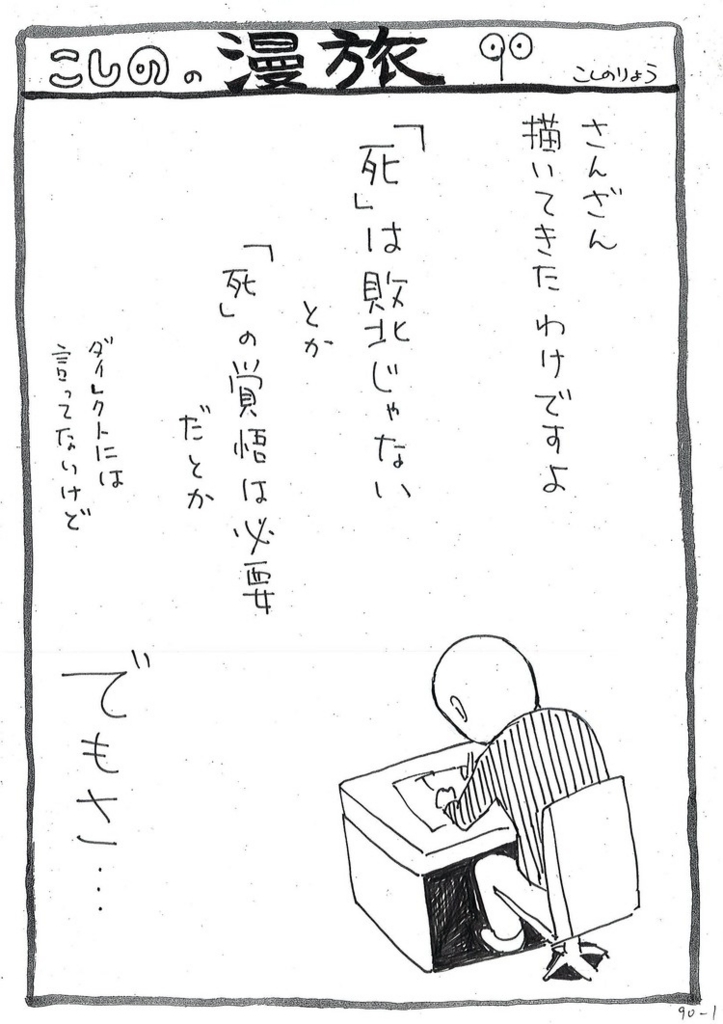 こしのの漫旅
こしのりょう
さんざん
描いてきたわけですよ
「死」は敗北じゃない
とか
「死」の覚悟は必要
だとか
ダイレクトには
言ってないけど
でもさ…
90-1